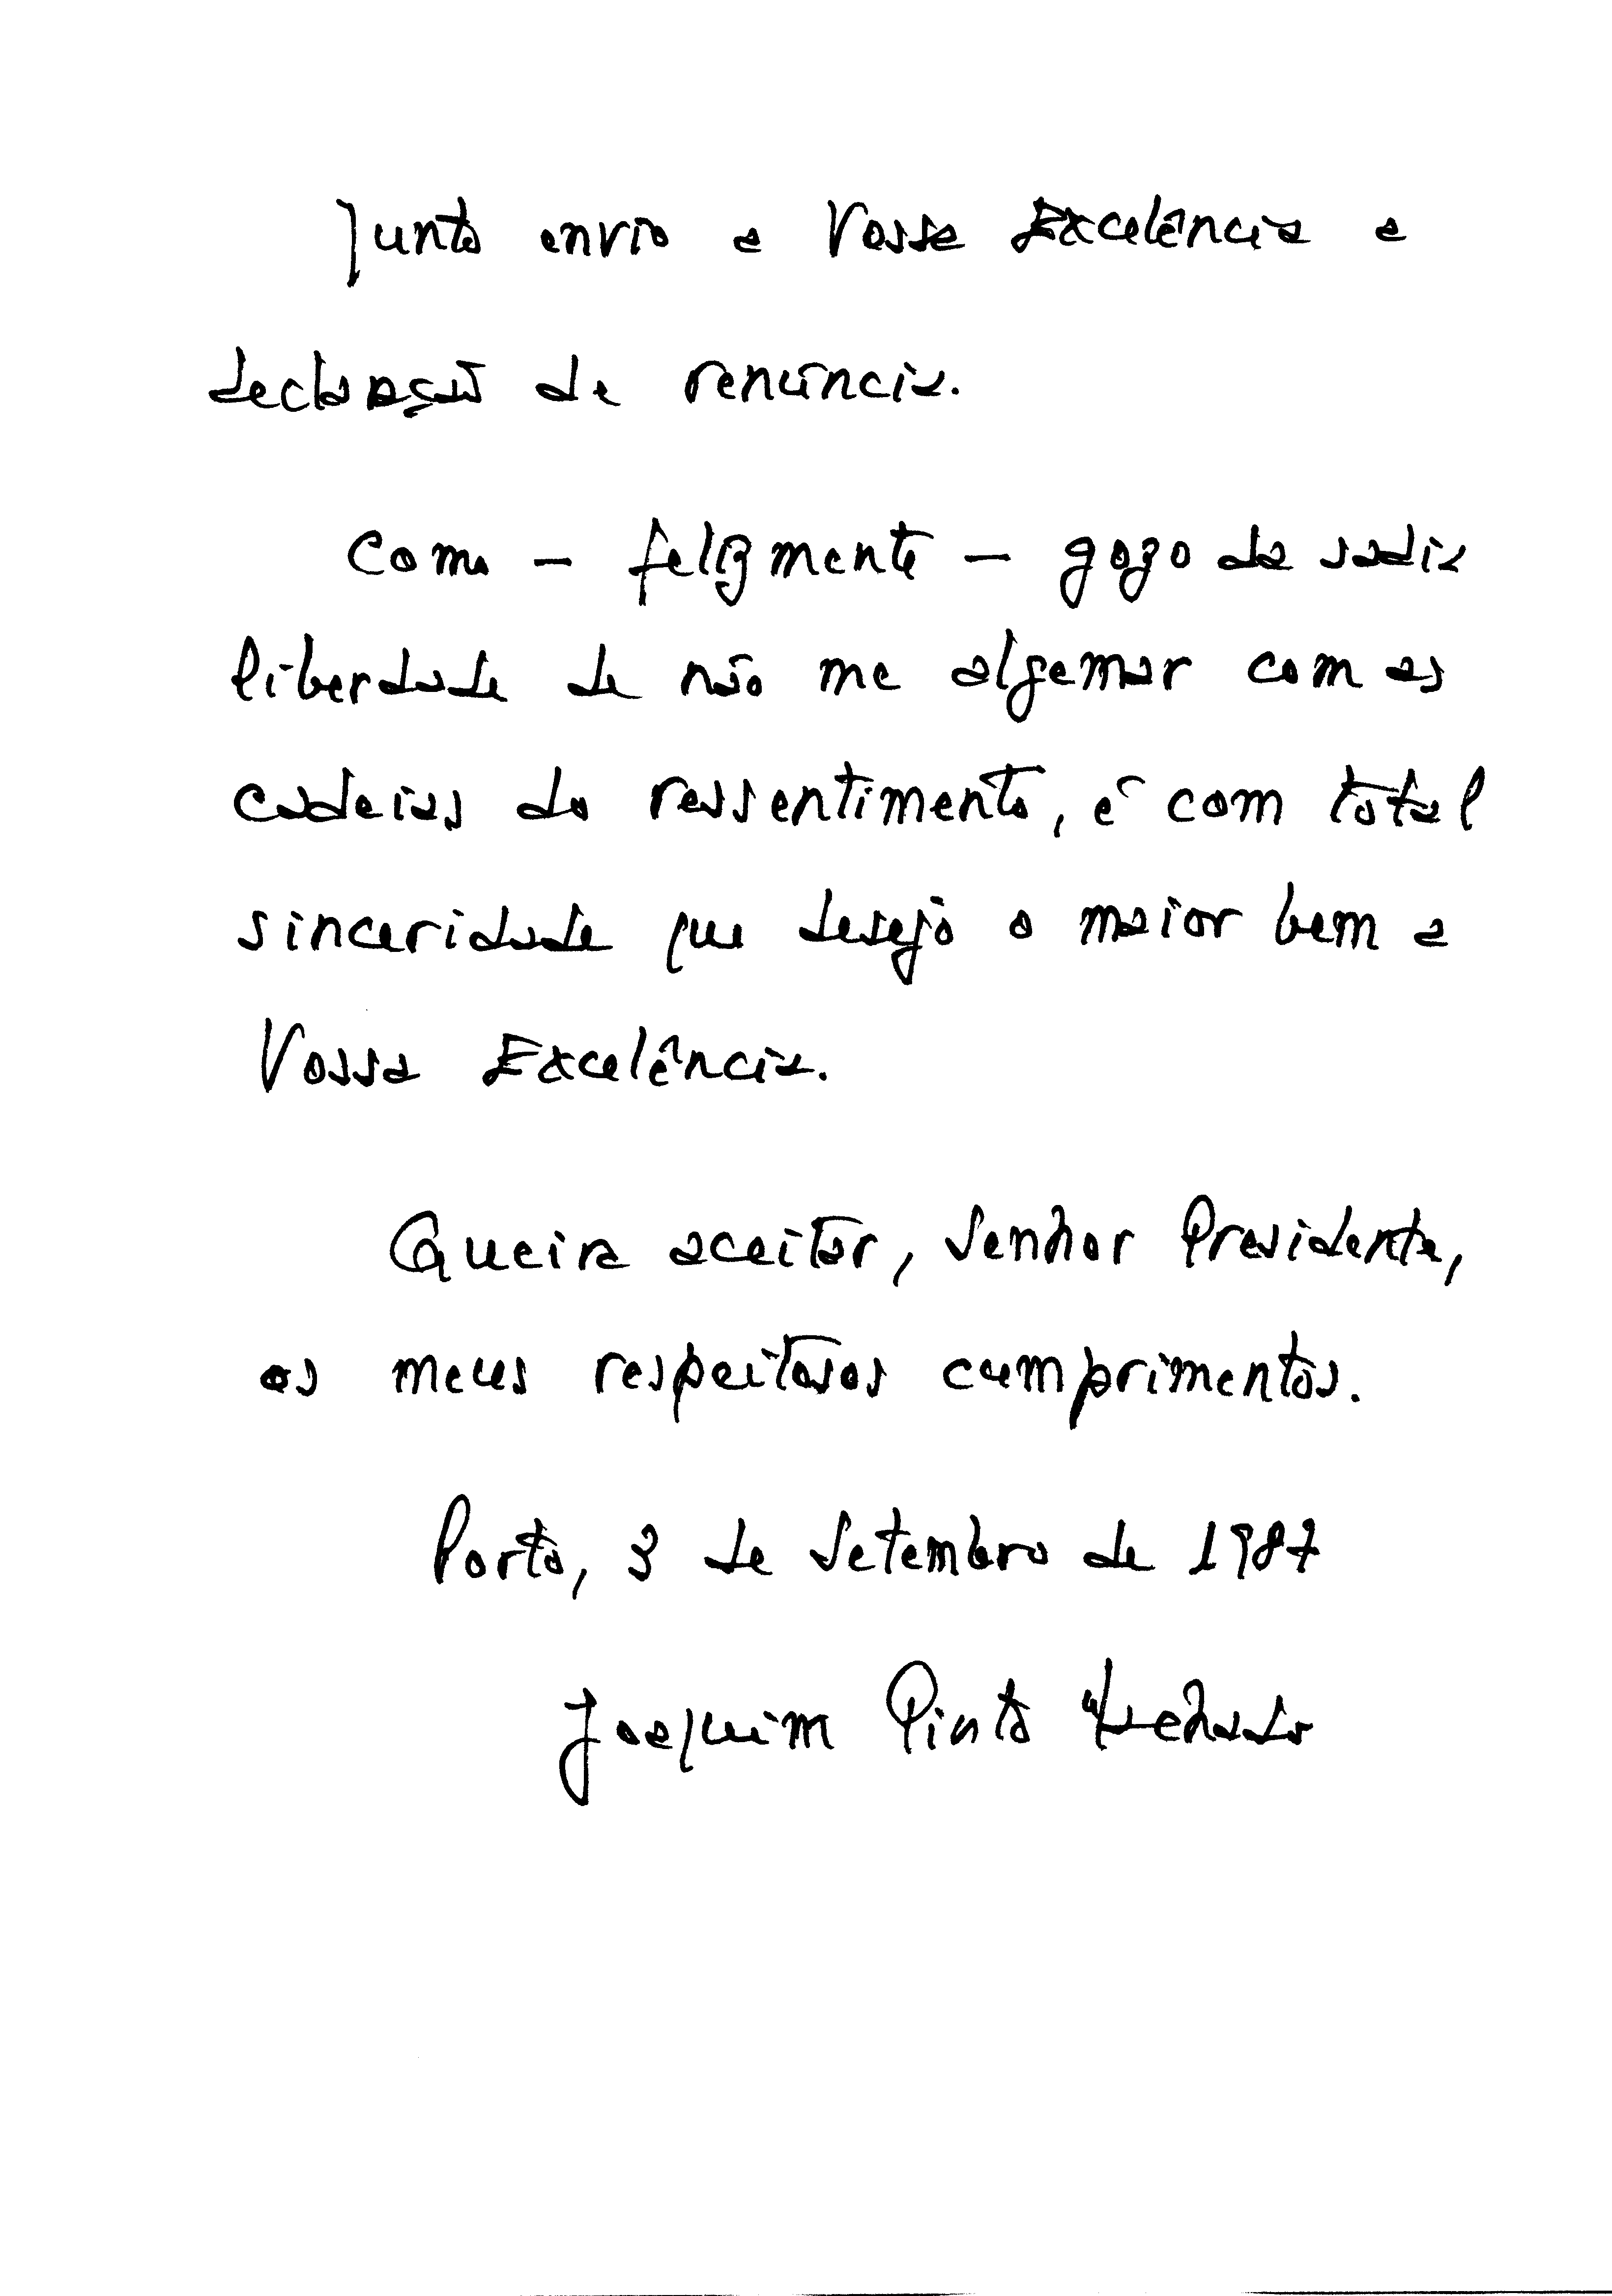 Junto envio a Vossa Excelência a
declaração de renúncia.
Como - felizmente - gozo da sadia
liberdade de não me algemar com as
cadeias do ressentimento, é com total
sinceridade que desejo o maior bem a
Vossa Excelência.
Queira aceitar, Senhor Presidente,
os meus respeitosos cumprimentos.
Porto, 3 de Setembro de 1987
Joaquim Pinto Machado